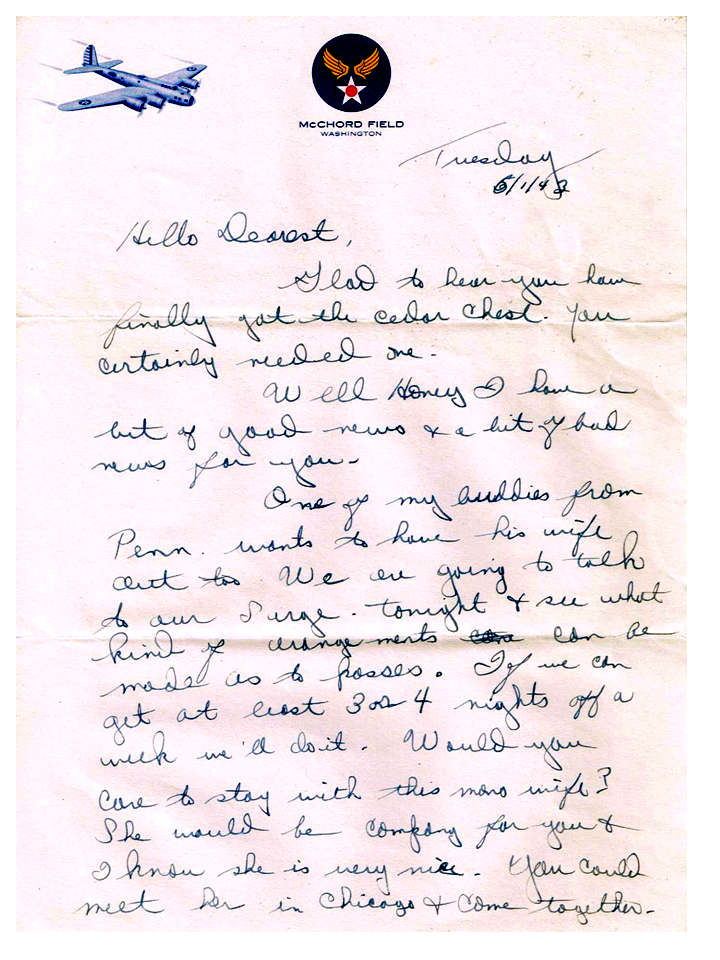 McCHORD FIELD
WASHINGTON
Tuesday
6/1/43
Hello Dearest,
Glad to hear you have
finally got the cedar chest. You
certainly needed one.
Well Honey I have a
bit of good news & a bit of bad
news for you.
One of my buddies from
Penn. wants to have his wife
out too. We are going to talk
to our Surge. tonight & see what
kind of arangements can be
made as to passes. If we can
get at least 3 or 4 nights off a
week we'll do it. Would you
care to stay with this mans wife?
She would be company for you &
I know she is very nice. You could
meet her in Chicago & come together.